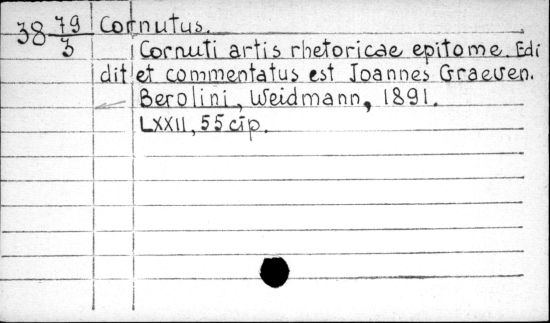 38 79/3 Cornutus.
Cornuti artis rhetoricae epitome. Edi
dit et commentatus est Joannes Graeven.
Berolini, Weidmann, 1891.
LXXII, 55 cip.